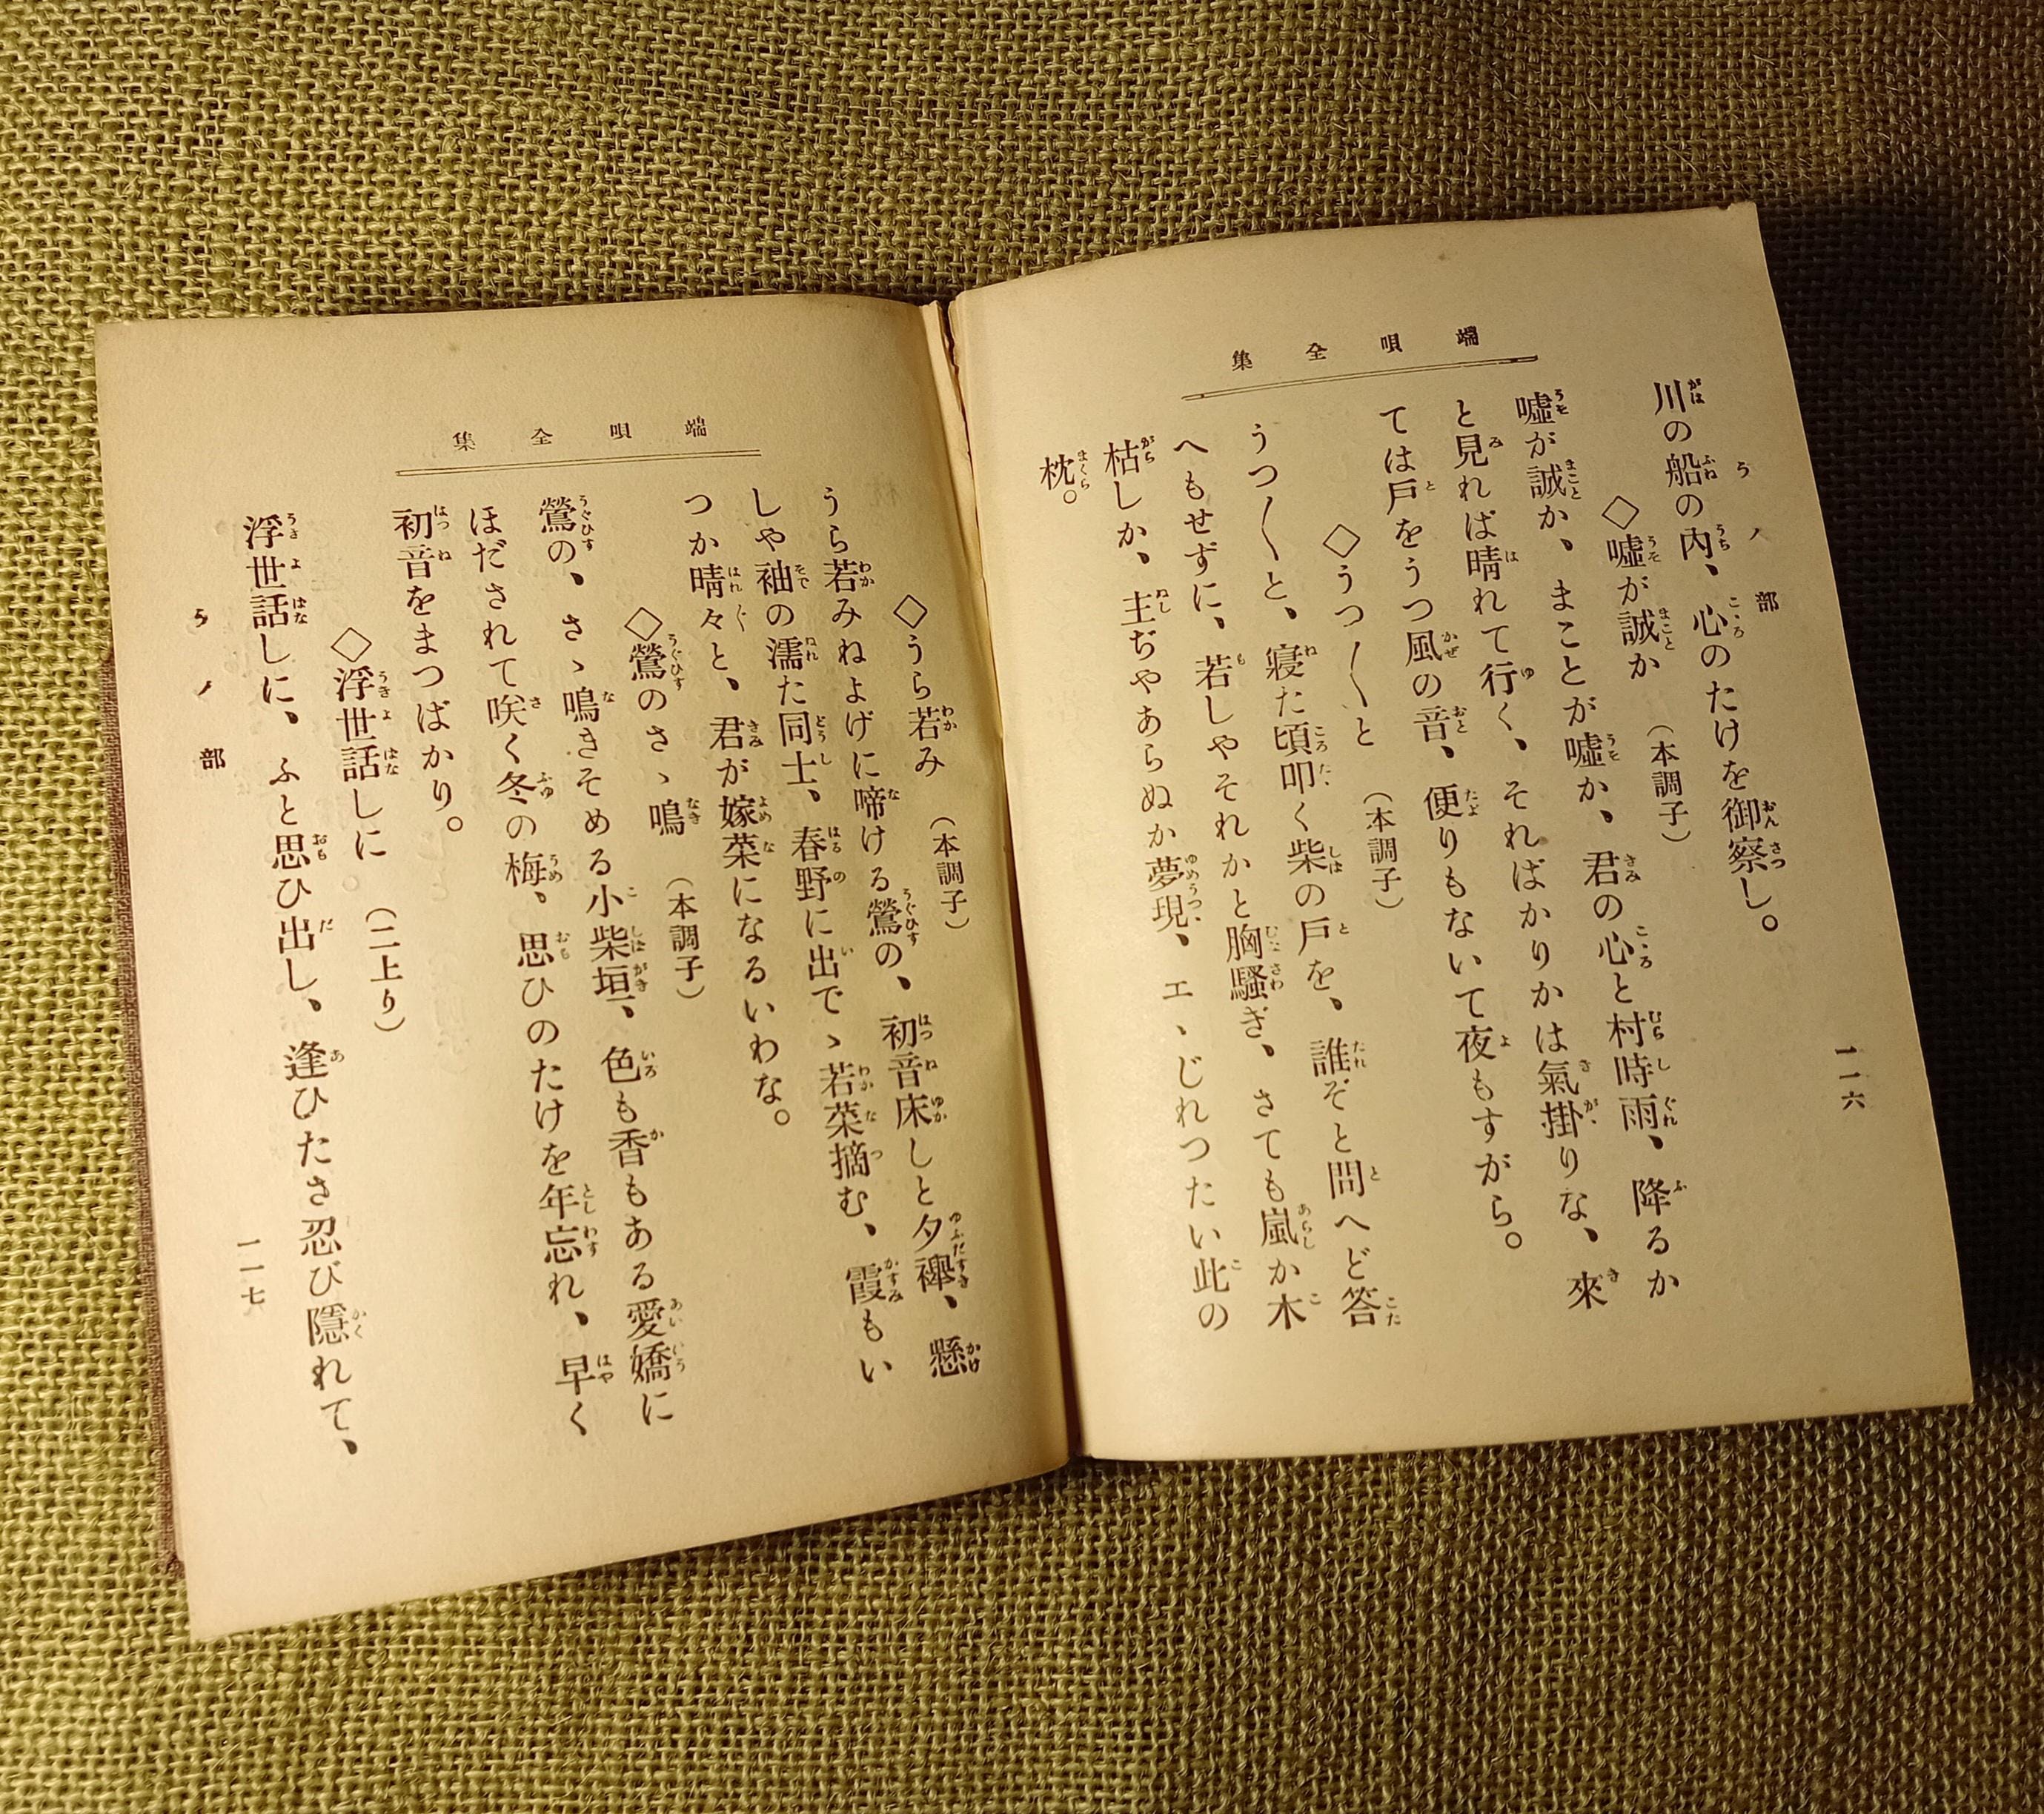 うノ部
一一六
端唄全集
川の船の内、心のたけを御察し。
◇嘘が誠か　（本調子）
嘘が誠か、まことが嘘か、君の心と村時雨、降るか
と見れば晴れて行く、そればかりかは氣掛りな、來
ては戸をうつ風の音、便りもないて夜もすがら。
◇うつ〳〵と　（本調子）
うつ〳〵と、寢た頃叩く柴の戸を、誰ぞと問へど答
へもせずに、若しやそれかと胸騷ぎ、さても嵐か木
枯しか、主ぢやあらぬか夢現、エヽじれつたい此の
枕。
端唄全集
◇うら若み　（本調子）
うら若みねよげに啼ける鶯の、初音床しと夕襷、懸
しや袖の濡れた同士、春野に出でゝ若菜摘む、霞もい
つか晴々と、君が嫁菜になるいわな。
◇鶯のさゝ鳴　（本調子）
鶯の、さゝ鳴きそめる小柴垣、色も香もある愛嬌に
ほだされて咲く冬の梅、思ひのたけを年忘れ、早く
初音をまつばかり。
◇浮世話しに　（二上り）
浮世話しに、ふと思ひ出し、逢ひたさ忍び隱れて、
うノ部
一一七